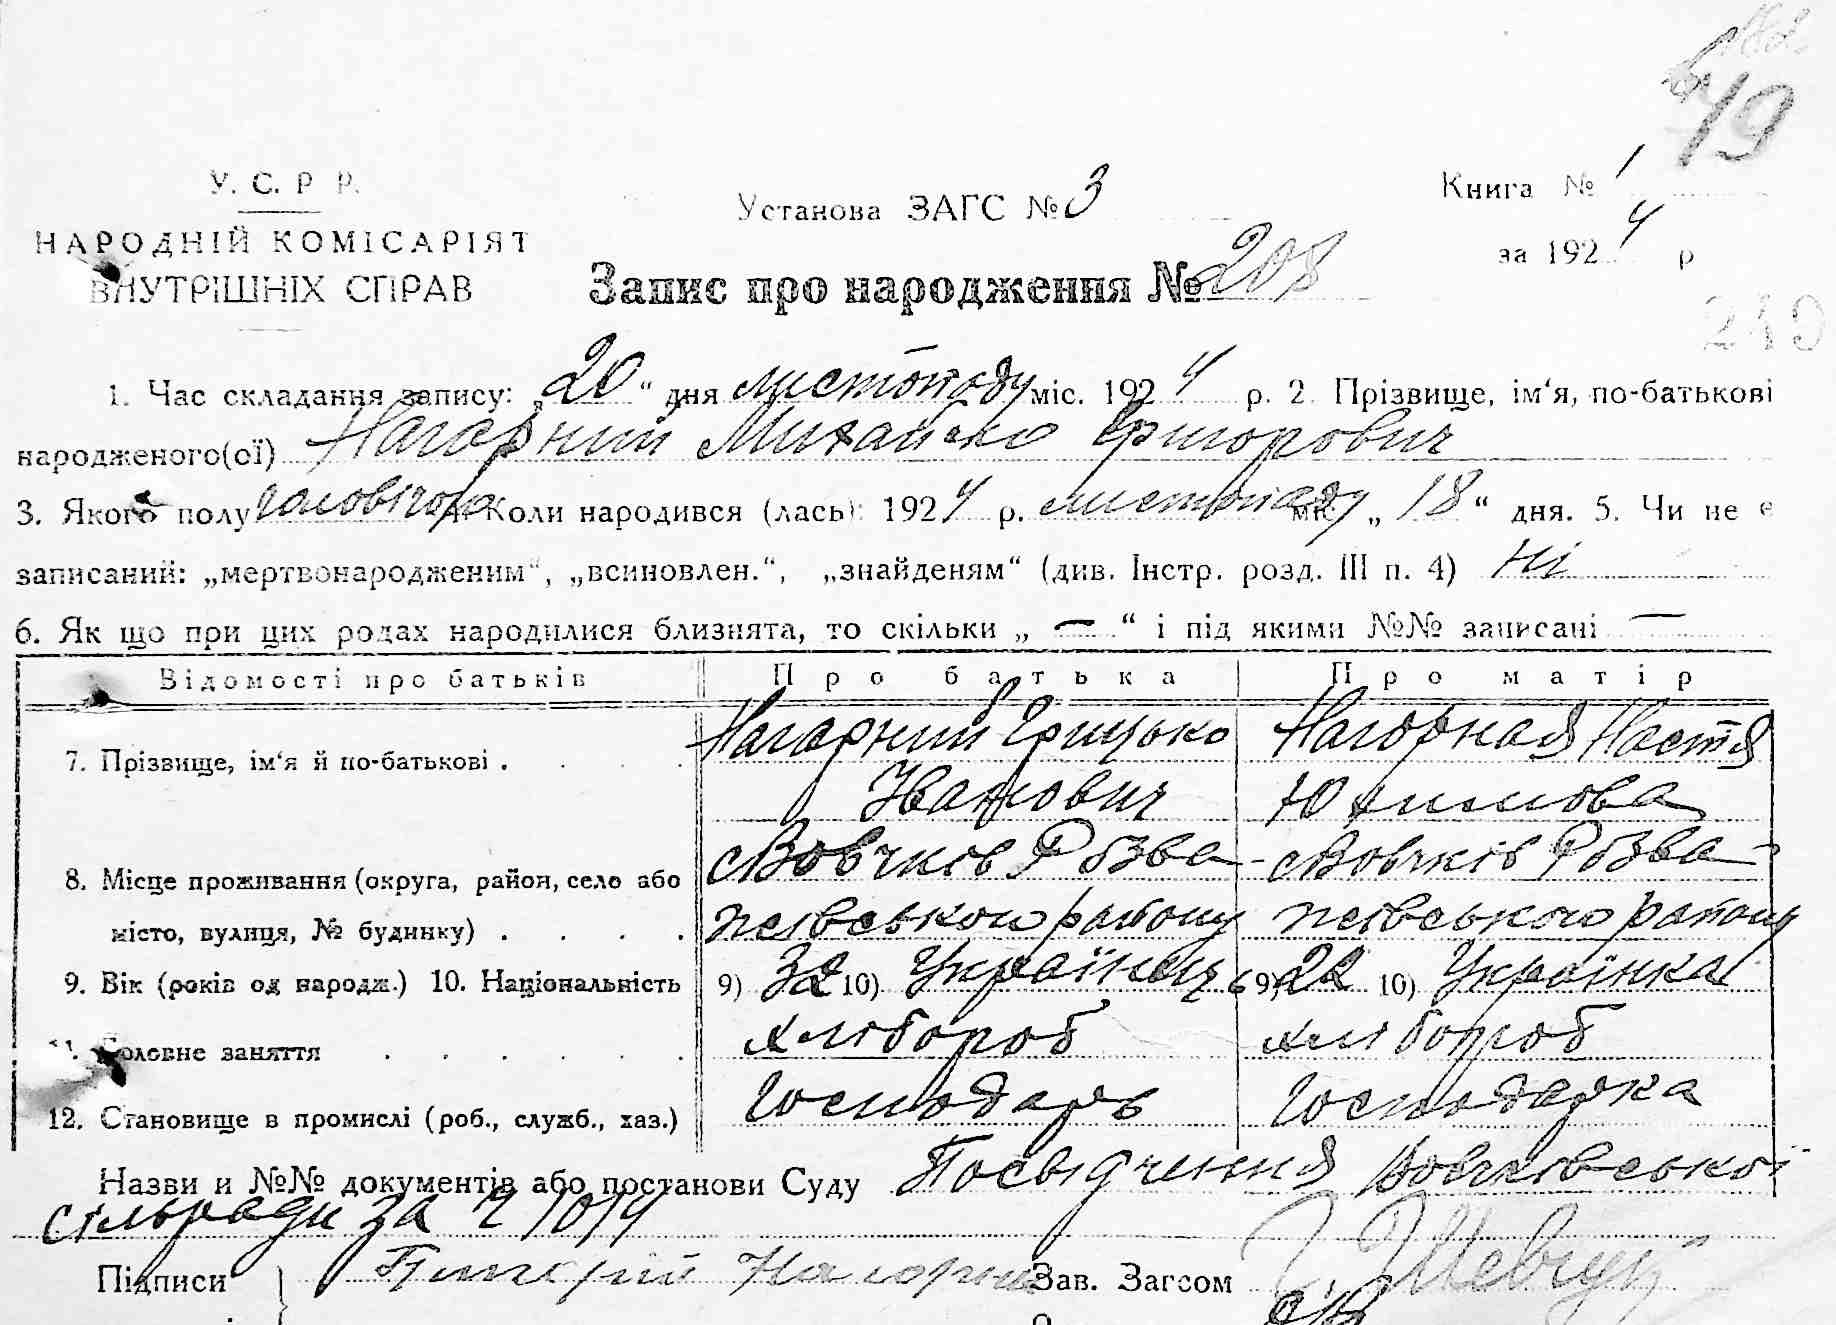 19
У. С. Р Р.
НАРОДНІЙ КОМІСАРІЯТ
ВНУТРІШНІХ СПРАВ
Установа ЗАГС № 3
Книга № 1
за 1924 р
Запис про народження № 208
249
1. Час складання запису: „20“ дня листопаду міс. 1924 р. 2. Прізвище, ім‘я, по-батькові
народженого(ої) Нагорний Михайло Григорович
3. Якого полу чоловічого 4. Коли народився (лась): 1924 р. листопаду міс. „18“ дня. 5. Чи не є
записаний: „мертвонародженим“, „всиновлен.“, „знайденям“ (див. Інстр. розд. III п. 4) Ні
6. Як що при цих родах народилися близнята, то скільки „—“ і під якими №№ записані —
Відомості про батьків Про батька Про матір
7. Прізвище, ім‘я й по-батькові . . . . Нагорний Грицько Нагорная Настя
Іванович Юхимова
8. Місце проживання (округа, район, село або с Вовчків Рбзва- с Вовчків Рбзва-
місто, вулиця, № будинку) . . . . району району
9. Вік (років од народж.) 10. Національність 9) 32 10) Українець 9) 22 10) Українка
11. Головне заняття . . . . . . хлібороб хлібороб
12. Становище в промислі (роб., служб., хаз.) Господарь Господарка
Назви и №№ документів або постанови Суду Посвідчення Вовчківської
сільради за № 1014
Підписи Григорій Нагорний Зав. Загсом Г. Шевчук